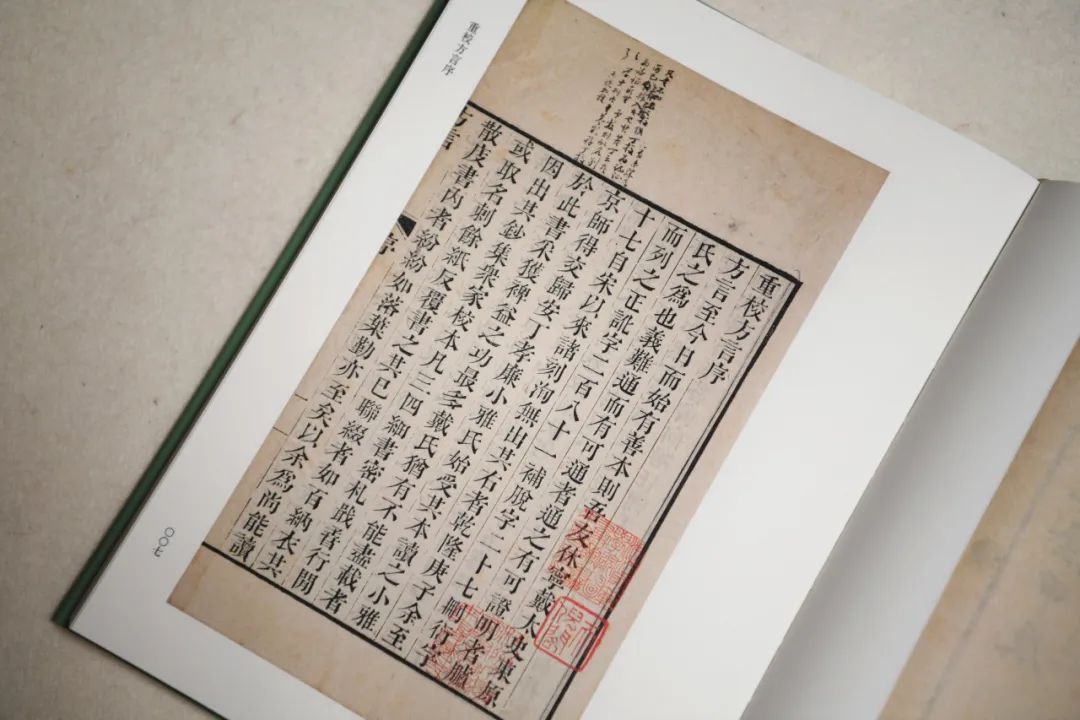 重校方言序
重校方言序
方言至今日而始有善本則吾友休寧戴太史東原
氏之為也義難通而有可通者通之有可證明者臚
而列之正訛字二百八十一補脫字二十七刪衍字
十七自宋以來諸刻洵無出其右者乾隆庚子余至
京師得交歸安丁孝廉小雅氏始受其本讀之小雅
於此書采獲裨益之功最多戴氏猶有不能盡載者
因出其鈔集衆家校本凡三四細書密札戢孴行閒
或取名刺餘紙反覆書之其已聯綴者如百納衣其
散庋書內者紛紛如落葉勤亦至矣以余為尚能讀
方言
序
〇〇七